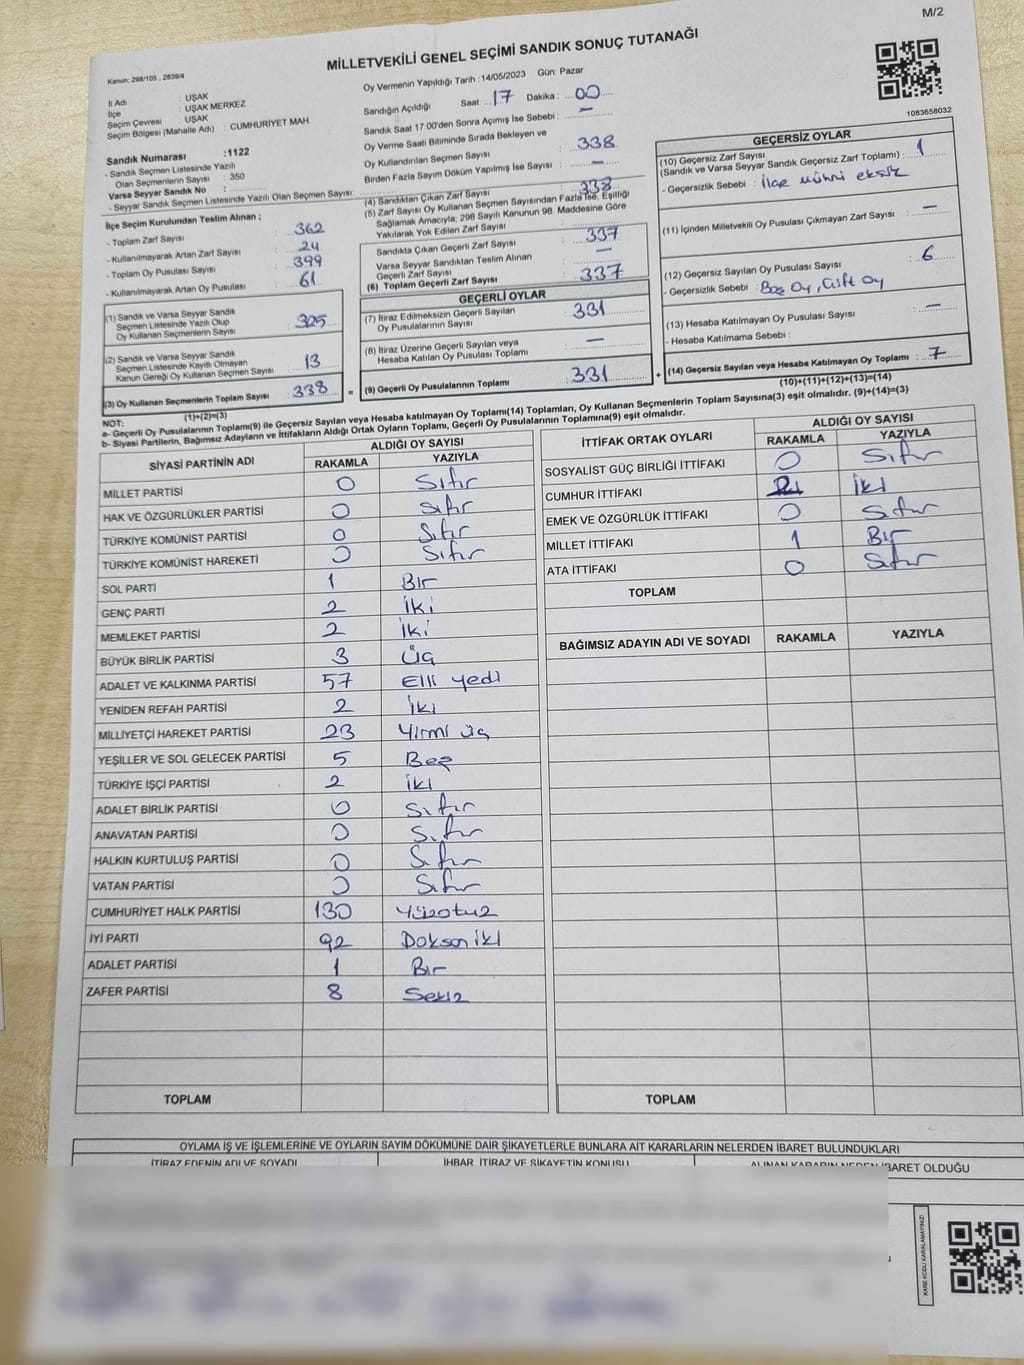 M/2
MİLLETVEKİLİ GENEL SEÇİMİ SANDIK SONUÇ TUTANAĞI
Kanun; 298/105 , 2839/4
İl Adı : UŞAK
İlçe : UŞAK MERKEZ
Seçim Çevresi : UŞAK
Seçim Bölgesi (Mahalle Adı) : CUMHURİYET MAH.
Sandık Numarası :1122
- Sandık Seçmen Listesinde Yazılı
Olan Seçmenlerin Sayısı : 350
Varsa Seyyar Sandık No :
- Seyyar Sandık Seçmen Listesinde Yazılı Olan Seçmen Sayısı:
Oy Vermenin Yapıldığı Tarih : 14/05/2023 Gün: Pazar
Sandığın Açıldığı Saat 17 Dakika : 00
Sandık Saat 17:00'den Sonra Açılmış İse Sebebi : —
Oy Verme Saati Bitiminde Sırada Bekleyen ve
Oy Kullandırılan Seçmen Sayısı : 338
Birden Fazla Sayım Döküm Yapılmış İse Sayısı : —
1083658032
İlçe Seçim Kurulundan Teslim Alınan ;
- Toplam Zarf Sayısı : 362
- Kullanılmayarak Artan Zarf Sayısı : 24
- Toplam Oy Pusulası Sayısı : 399
- Kullanılmayarak Artan Oy Pusulası : 61
(1) Sandık ve Varsa Seyyar Sandık
Seçmen Listesinde Yazılı Olup
Oy Kullanan Seçmenlerin Sayısı : 325
(2) Sandık ve Varsa Seyyar Sandık
Seçmen Listesinde Kayıtlı Olmayan
Kanun Gereği Oy Kullanan Seçmen Sayısı : 13
(3) Oy Kullanan Seçmenlerin Toplam Sayısı : 338
(1)+(2)=(3)
(4) Sandıktan Çıkan Zarf Sayısı : 338
(5) Zarf Sayısı Oy Kullanan Seçmen Sayısından Fazla İse, Eşitliği
Sağlamak Amacıyla; 298 Sayılı Kanunun 98. Maddesine Göre
Yakılarak Yok Edilen Zarf Sayısı :
Sandıkta Çıkan Geçerli Zarf Sayısı : 337
Varsa Seyyar Sandıktan Teslim Alınan
Geçerli Zarf Sayısı : —
(6) Toplam Geçerli Zarf Sayısı : 337
GEÇERLİ OYLAR
(7) İtiraz Edilmeksizin Geçerli Sayılan
Oy Pusulalarının Sayısı : 331
(8) İtiraz Üzerine Geçerli Sayılan veya
Hesaba Katılan Oy Pusulası Toplamı : —
= (9) Geçerli Oy Pusulalarının Toplamı : 331 +
GEÇERSİZ OYLAR
(10) Geçersiz Zarf Sayısı
(Sandık ve Varsa Seyyar Sandık Geçersiz Zarf Toplamı) : 1
- Geçersizlik Sebebi : İlçe mührü eksik
(11) İçinden Milletvekili Oy Pusulası Çıkmayan Zarf Sayısı : —
(12) Geçersiz Sayılan Oy Pusulası Sayısı : 6
- Geçersizlik Sebebi : Boş Oy, Çift Oy
(13) Hesaba Katılmayan Oy Pusulası Sayısı : —
- Hesaba Katılmama Sebebi :
(14) Geçersiz Sayılan veya Hesaba Katılmayan Oy Toplamı : 7
(10)+(11)+(12)+(13)=(14)
NOT:
a- Geçerli Oy Pusulalarının Toplamı(9) ile Geçersiz Sayılan veya Hesaba katılmayan Oy Toplamı(14) Toplamları, Oy Kullanan Seçmenlerin Toplam Sayısına(3) eşit olmalıdır. (9)+(14)=(3)
b- Siyasi Partilerin, Bağımsız Adayların ve İttifakların Aldığı Ortak Oyların Toplamı, Geçerli Oy Pusulalarının Toplamına(9) eşit olmalıdır.
SİYASİ PARTİNİN ADI ALDIĞI OY SAYISI
RAKAMLA YAZIYLA
MİLLET PARTİSİ 0 Sıfır
HAK VE ÖZGÜRLÜKLER PARTİSİ 0 Sıfır
TÜRKİYE KOMÜNİST PARTİSİ 0 Sıfır
TÜRKİYE KOMÜNİST HAREKETİ 0 Sıfır
SOL PARTİ 1 Bir
GENÇ PARTİ 2 İki
MEMLEKET PARTİSİ 2 İki
BÜYÜK BİRLİK PARTİSİ 3 Üç
ADALET VE KALKINMA PARTİSİ 57 Elli yedi
YENİDEN REFAH PARTİSİ 2 İki
MİLLİYETÇİ HAREKET PARTİSİ 23 Yirmi üç
YEŞİLLER VE SOL GELECEK PARTİSİ 5 Beş
TÜRKİYE İŞÇİ PARTİSİ 2 İki
ADALET BİRLİK PARTİSİ 0 Sıfır
ANAVATAN PARTİSİ 0 Sıfır
HALKIN KURTULUŞ PARTİSİ 0 Sıfır
VATAN PARTİSİ 0 Sıfır
CUMHURİYET HALK PARTİSİ 130 Yüzotuz
İYİ PARTİ 92 Doksan iki
ADALET PARTİSİ 1 Bir
ZAFER PARTİSİ 8 Sekiz
TOPLAM
İTTİFAK ORTAK OYLARI ALDIĞI OY SAYISI
RAKAMLA YAZIYLA
SOSYALİST GÜÇ BİRLİĞİ İTTİFAKI 0 Sıfır
CUMHUR İTTİFAKI 2 İki
EMEK VE ÖZGÜRLÜK İTTİFAKI 0 Sıfır
MİLLET İTTİFAKI 1 Bir
ATA İTTİFAKI 0 Sıfır
TOPLAM
BAĞIMSIZ ADAYIN ADI VE SOYADI RAKAMLA YAZIYLA
TOPLAM
OYLAMA İŞ VE İŞLEMLERİNE VE OYLARIN SAYIM DÖKÜMÜNE DAİR ŞİKAYETLERLE BUNLARA AİT KARARLARIN NELERDEN İBARET BULUNDUKLARI
İTİRAZ EDENİN ADI VE SOYADI İHBAR, İTİRAZ VE ŞİKAYETİN KONUSU ALINAN KARARIN NEDEN İBARET OLDUĞU
KARE KODU KARALAMAYINIZ!